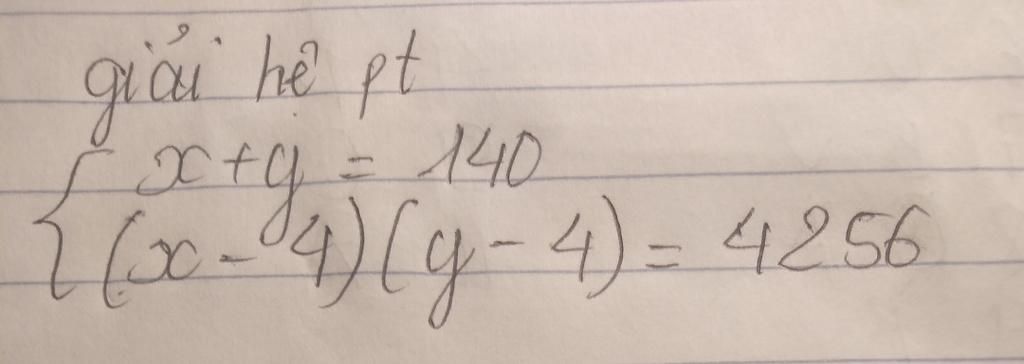 giải hệ pt
{ x+y = 140
(x - 4)(y - 4) = 4256